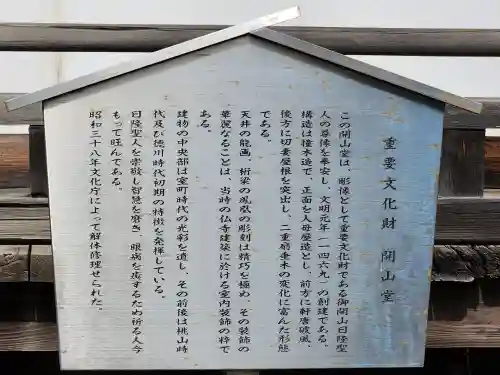 重要文化財 開山堂
この開山堂は、彫像として重要文化財である御開山日隆聖
人の尊像を奉安し、文明元年(一四六九)の創建である。
構造は檜木造で、正面を入母屋造とし、前方に軒唐破風、
後方に切妻屋根を突出し、二重扇垂木の変化に富んだ形態
である。
天井の龍画、蚪梁の鳳弘の彫刻は精巧を極め、その装飾の
華麗なることは、当時の仏寺建築に於ける室内装飾の粋で
ある。
建物の中央部は室町時代の光彩を遺し、その前後は桃山時
代及び徳川時代初期の特徴を発揮している。
日隆聖人を崇敬し智慧を磨き、眼病を癒するため祈る人今
もって旺んである。
昭和三十八年文化庁によって解体修理せられた。